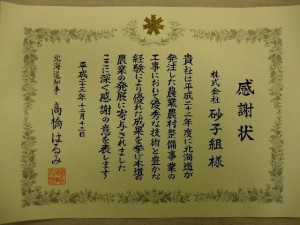 感謝状
株式会社 砂子組様
貴社は平成二十二年度に北海道が
発注した農業農村整備事業の
工事において優秀な技術と豊かな
経験により優れた成果を挙げ本道の
農業の発展に寄与されました
ここに深く感謝の意を表します
平成二十三年十二月十二日
北海道知事 高橋はるみ